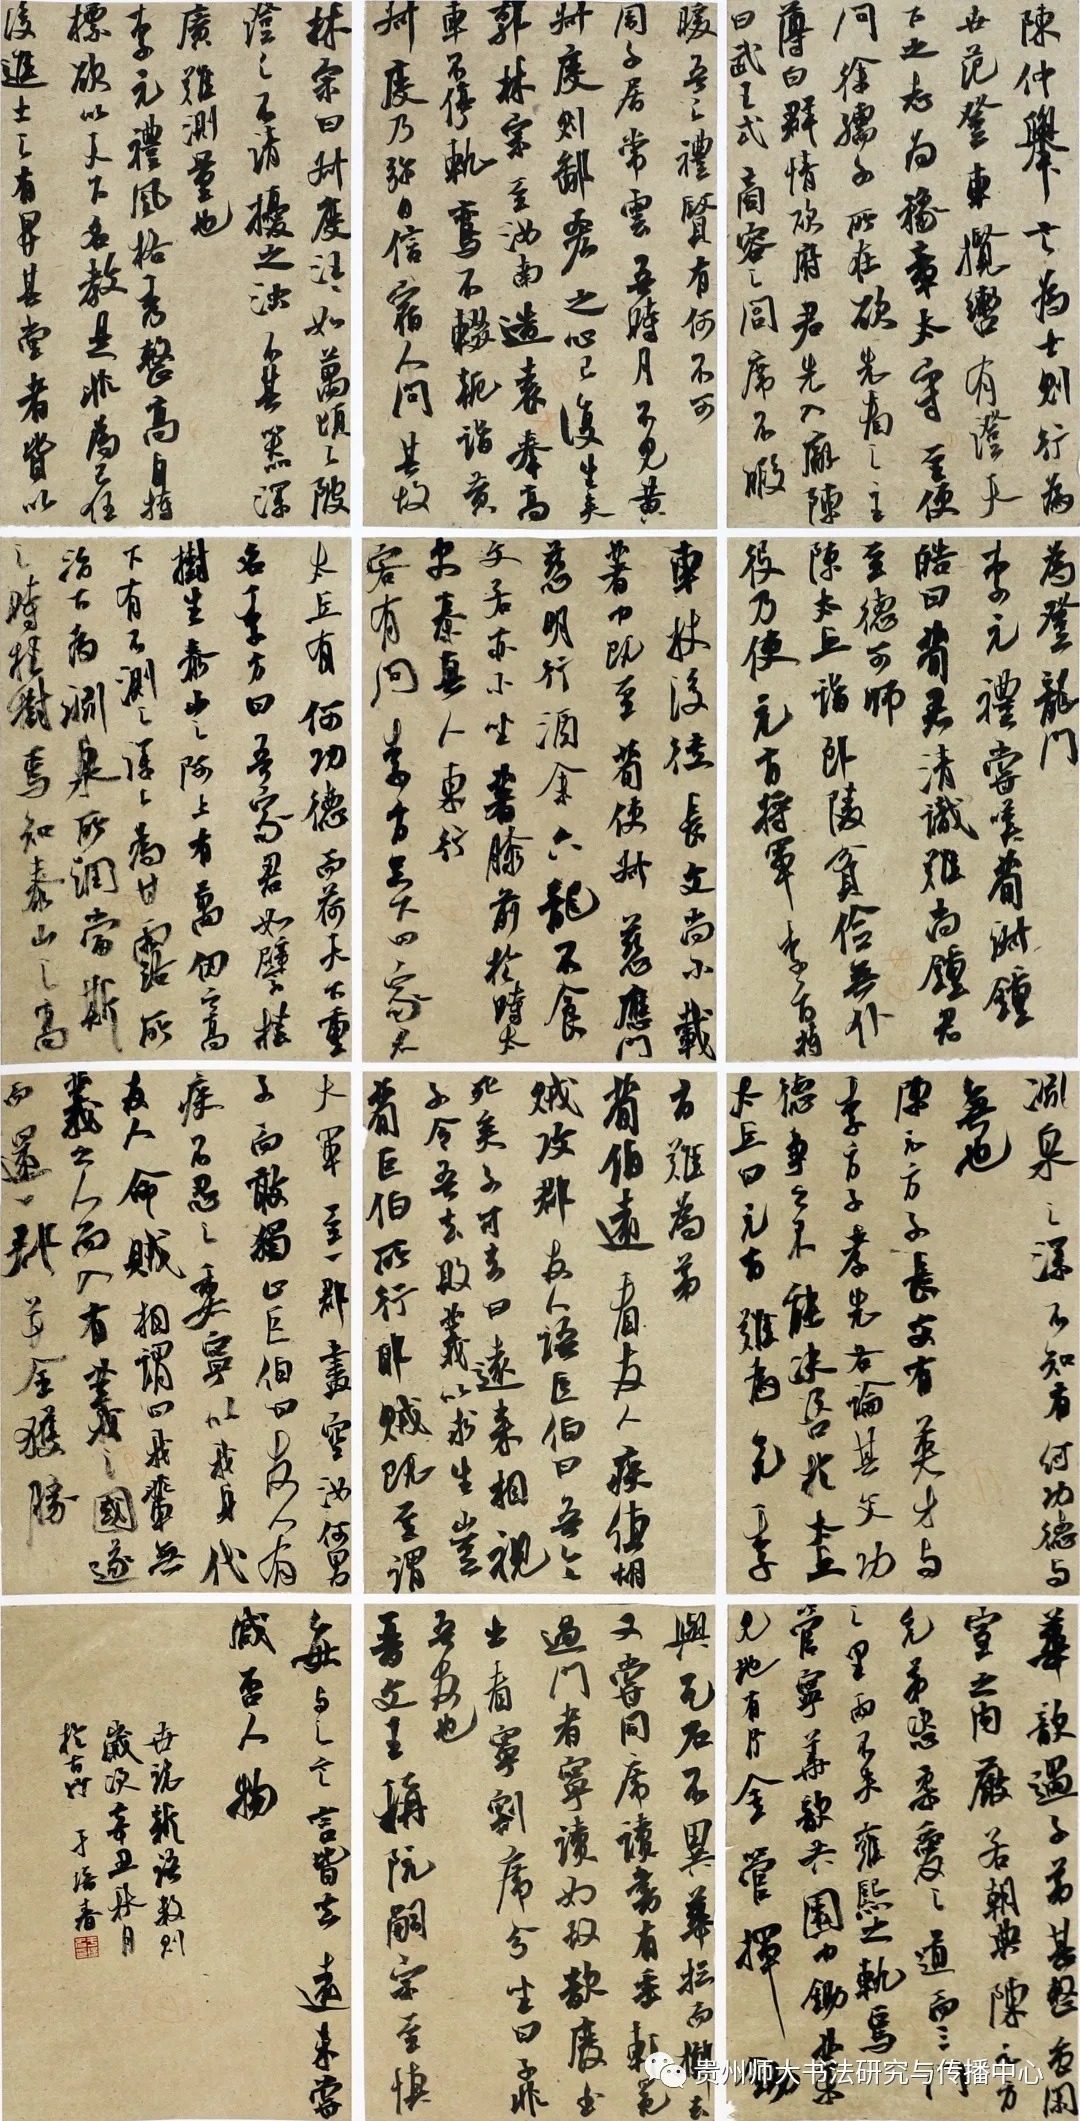 陳仲舉言為士則行為
世范登車攬轡有澄天
下之志為豫章太守至便
問徐孺子所在欲先看之主
薄白群情欲府君先入廨陳
曰武王式商容之閭席不暇
暖吾之禮賢有何不可
周子居常雲吾時月不見黃
叔度則鄙吝之心已復生矣
郭林宗至汝南造袁奉高
車不停軌鸞不輟軛詣黃
叔度乃彌日信宿人問其故
林宗曰叔度汪汪如萬頃之陂
澄之不清擾之濁不其器深
廣難測量也
李元禮風格秀整高自持
標欲以天下名教是非為己任
後進士之有昇其堂者皆以
為登龍門
李元禮嘗嘆荀淑鍾
皓曰荀君清識難尚鍾君
至德可師
陳太丘詣郎陵貧儉無仆
役乃使元方將軍季方持
車杖後從長文尚小載
著中既至荀使叔慈應門
慈明行酒余六龍下食
文若亦小坐著膝前於時太
史奏真人東行
客有問季方足下四家君
太丘有何功德而荷天下重
名季方曰吾家君如譬桂
樹生泰山之阿上有萬仞之高
下有不測之深上為甘露所
沾下為淵泉所潤當斯
之時桂樹焉知泰山之高
淵泉之深不知有何功德與
無也
陳元方子長文有英才與
季方子孝先各論其父功
德爭之不能決咨於太丘
太丘曰元方難為兄季
方難為弟
荀伯遠看友人疾值胡
賊攻郡友人語巨伯曰吾今
死矣子可去曰遠來相視
子令吾去敗義以求生豈
荀巨伯所行耶賊既至謂
大軍至一郡盡空汝何男
子而敢獨止巨伯曰友人有
疾不忍之委寧以我身代
友人命賊相謂曰我輩無
義之人而入有義之國遂
而還一郡並全獲勝
華歆遇子弟甚整雖閒
室之內嚴若朝典陳元方
兄弟恣柔愛之道而二門
之里兩不失雍熙之軌焉
管寧華歆共園中鋤菜
見地有片金管揮鋤
與瓦石不異華捉而擲去
又嘗同席讀書有乘軒冕
過門者寧讀如故歆廢書
出看寧割席分坐曰子非
吾友也
晉文王稱阮嗣宗至慎
每與之言言皆玄遠未嘗
臧否人物
世說新語數則
歲次辛丑秋月
於古黔
贵州师大书法研究与传播中心